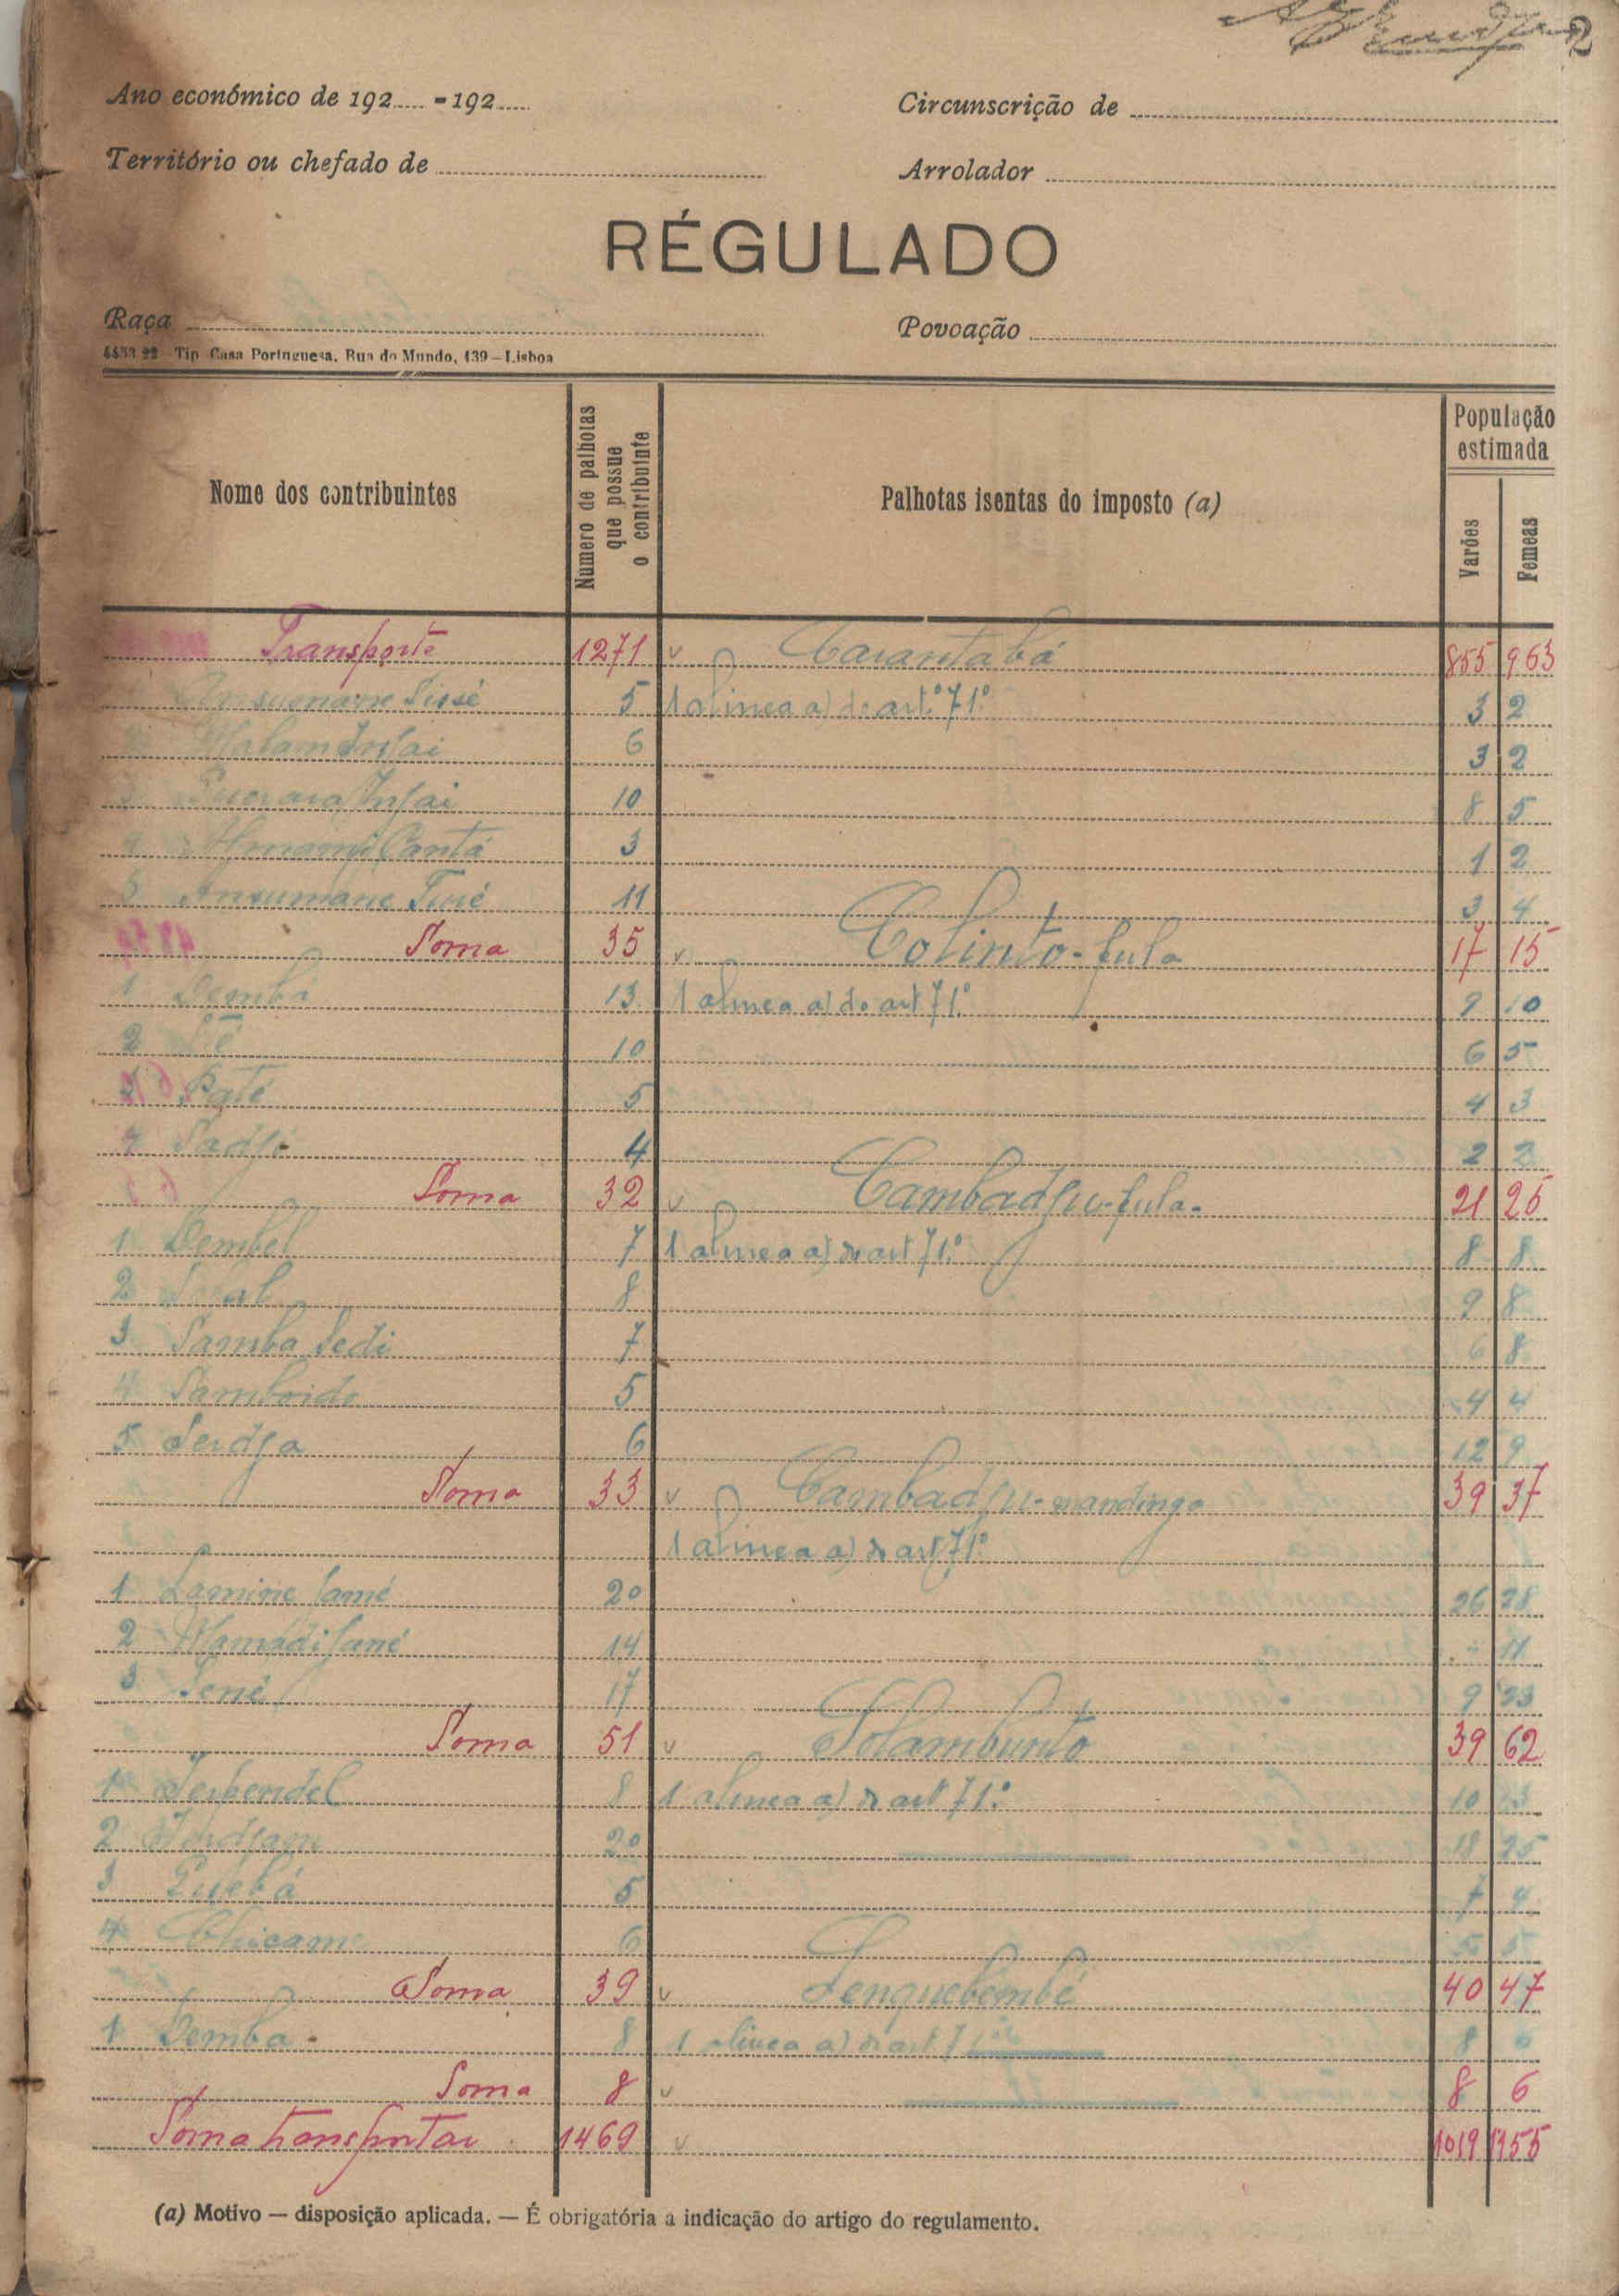 2
Ano económico de 192..... - 192.....
Circunscrição de
Território ou chefado de
Arrolador
RÉGULADO
Raça
Povoação
Tip Casa Portuguesa, Rua do Mundo, 139 – Lisboa
Nome dos contribuintes
Numero de palhotas que possue o contribuinte
Palhotas isentas do imposto (a)
População estimada
Varões
Femeas
Transporte 1271 v Carantabá 855 963
Sissé 5 1 alinea a) do art.º 71.º 3 2
2 Malam Injai 6 3 2
3 Injai 10 8 5
4 Cantá 3 1 2
5 Ansumane Turé 11 3 4
Soma 35 v Colinto-fula 17 15
1 Dembá 13 1 alinea a) do art 71.º 9 10
2 10 6 5
3 Paté 5 4 3
4 Sadjo 4 2 2
Soma 32 v Cambadju-fula 21 25
1 Dembel 7 1 alinea a) do art 71.º 8 8
2 8 9 8
3 Samba Sedi 7 6 8
4 Samboido 5 4 4
5 6 12 9
Soma 33 v Cambadju-mandinga 39 37
1 alinea a) do art 71.º
1 Lamine Sané 20 26 28
2 Mamadi Sané 14 11
3 Sené 17 9 23
Soma 51 v 39 62
1 8 1 alinea a) do art 71.º 10 13
2 20 18 25
3 Quebá 5 7 4
4 6 5 5
Soma 39 v 40 47
1 Demba 8 1 alinea a) do art 71.º 8 6
Soma 8 v 8 6
Soma transportar 1469 v 1019 1155
(a) Motivo — disposição aplicada. — É obrigatória a indicação do artigo do regulamento.